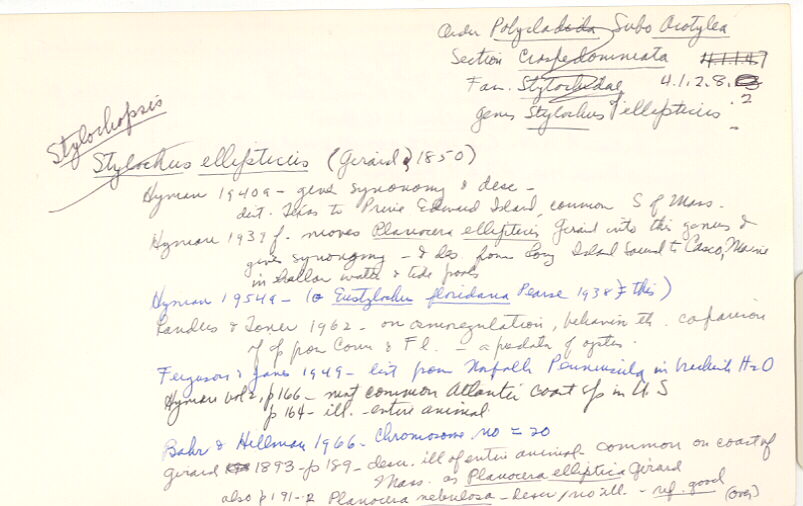 Order Polycladida Subo Acotylea
Section Craspedommata 4.1.1.4.7
Fam. Stylochidae 4.1.2.8.
.2
genus Stylochus ellipticus
Stylochopsis
Stylochus ellipticus (Girard, 1850)
Hyman 1940a - gives synonomy & desc -
dist. Texas to Prince Edward Island, common S of Mass.
Hyman 1939f. moves Planocera ellipticus Girard into this genus &
gives synonymy - & des from Long Island Sound to Casco, Maine
in shallow water & tide pools
Hyman 1954a - ( Eustylochus floridana Pearse 1938 ≠ this)
Landers & Toner 1962 - on osmoregulation, behavior eth. comparison
of sp from Conn & Fl. - a predator of oyster.
Ferguson & Jones 1949 - list from Norfolk Penninsula in brackish H2O
Hyman vol 2, p166 - most common Atlantic coast sp in U.S
p 164 - ill. entire animal
Bahr & Hillman 1966 - Chromosome no = 20
Girard 1893 - p 189 - descr. ill of entire animal - common on coast of
Mass. as Planocera elliptica Girard
also p 191-2 Planocera nebulosa - descr/no ill. - ref. good
(over)